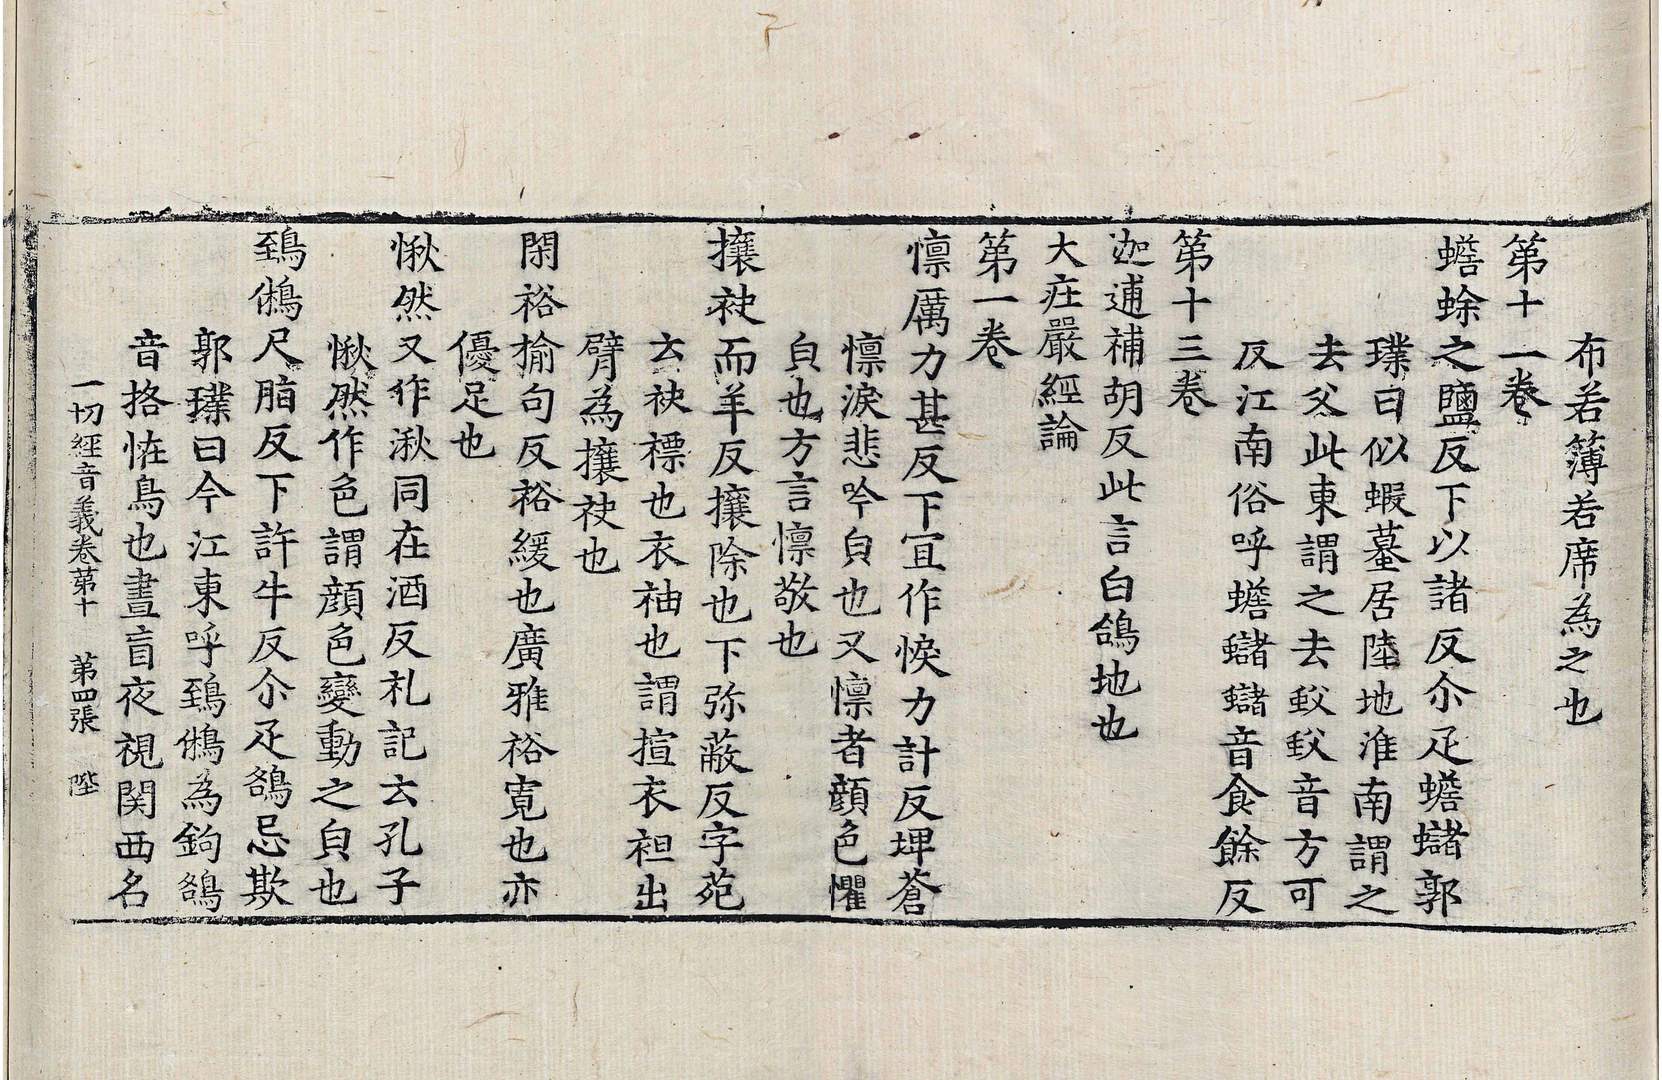 布若簿若席為之也
第十一卷
蟾蜍之鹽反下以諸反尒疋蟾蠩郭
璞曰似蝦蟇居陸地淮南謂之
去父此東謂之去𧊧𧊧音方可
反江南俗呼蟾蠩蠩音食餘反
第十三卷
迦逋補胡反此言白鴿地也
大庄嚴經論
第一卷
懔厲力甚反下宜作悷力計反埤蒼
懔淚悲吟皃也又懔者顔色懼
皃也方言懔敬也
攘袂而羊反攘除也下弥蔽反字苑
云袂褾也衣袖也謂揎衣袒出
臂為攘袂也
閑裕揄句反裕緩也廣雅裕寬也亦
優足也
愀然又作湫同在酒反札記云孔子
愀然作色謂顔色變動之皃也
鵄鵂尺脂反下許牛反尒疋鵅忌欺
郭璞曰今江東呼鵄鵂為鉤鵅
音格恠鳥也晝盲夜視関西名
一切經音義卷第十 第四張 陛